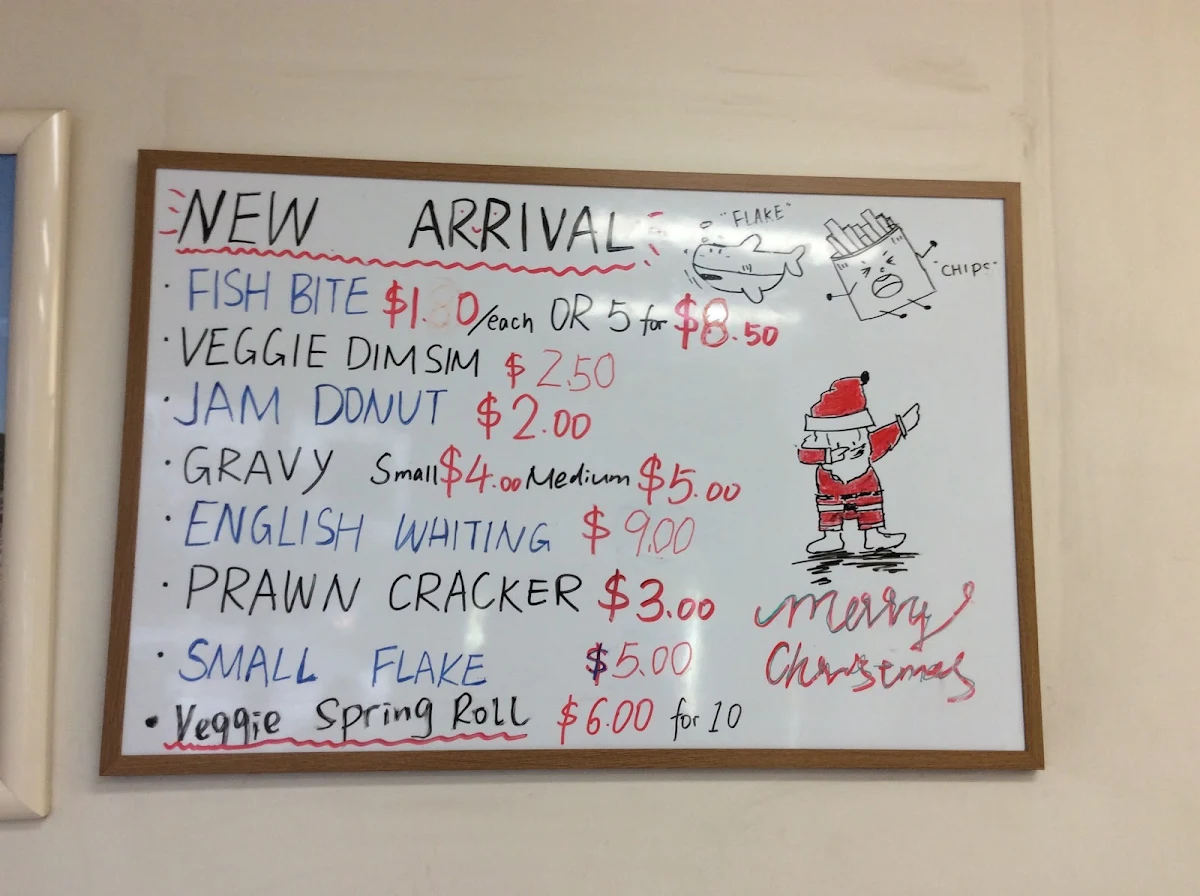 NEW ARRIVAL
"FLAKE"
"CHIPS"
· FISH BITE /each OR 5 for $8.50
· VEGGIE DIMSIM $2.50
· JAM DONUT $2.00
· GRAVY Small $4.00 Medium $5.00
· ENGLISH WHITING $9.00
· PRAWN CRACKER $3.00
· SMALL FLAKE $5.00
• Veggie Spring Roll $6.00 for 10
Merry
Christmas